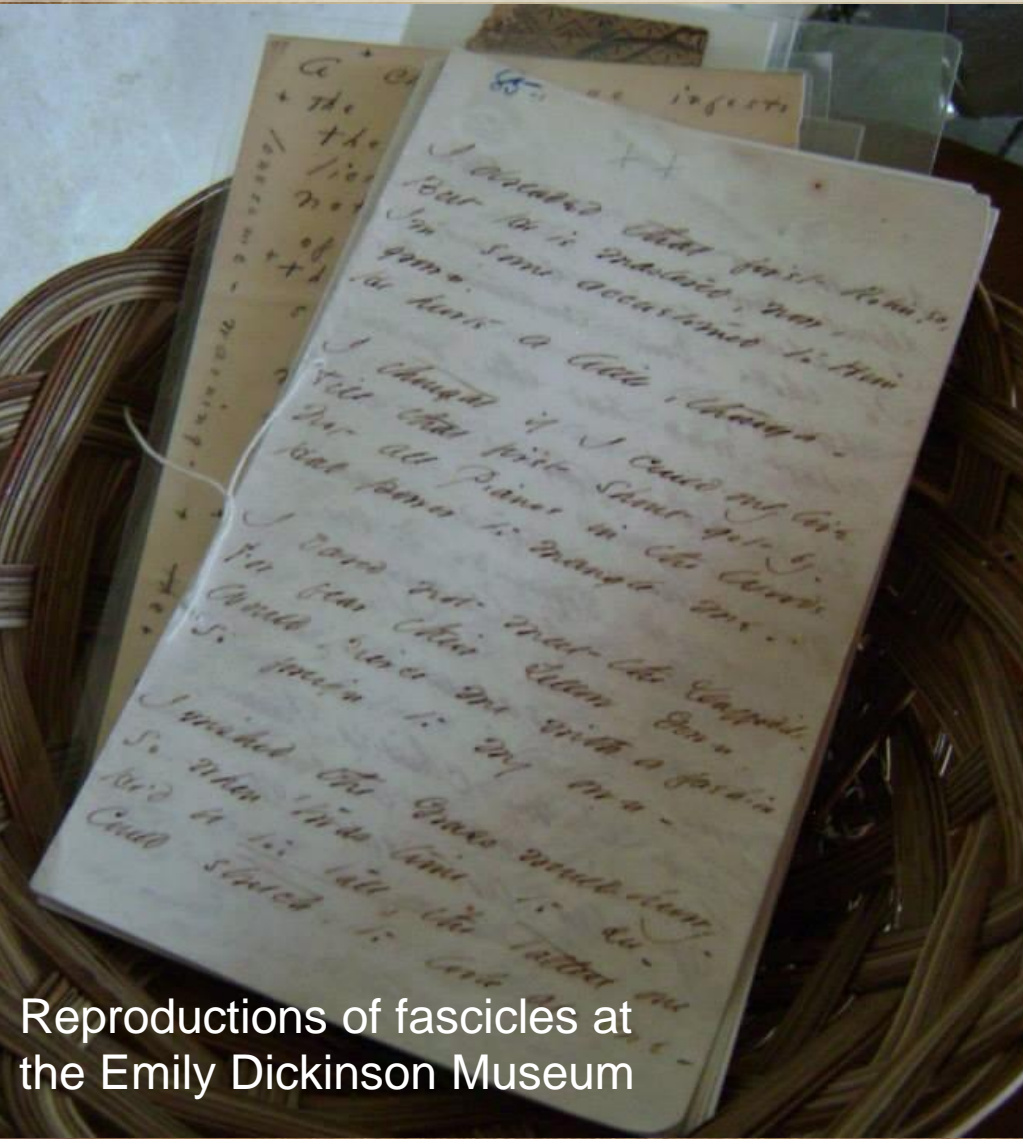 The
the
not
of
I dreaded that first Robin, so,
But He is mastered, now,
I'm some accustomed to Him
grown,
He hurts a little, though -
I thought if I could only live
Till that first Shout got by -
Not all Pianos in the Woods
Had power to mangle me -
I dared not meet the Daffodils -
For fear their Yellow Gown
Would pierce me with a fashion
So foreign to my own -
I wished the Grass would hurry -
So when 'twas time to see -
He'd be too tall, the tallest one
Could stretch to look at me -
Reproductions of fascicles at
the Emily Dickinson Museum